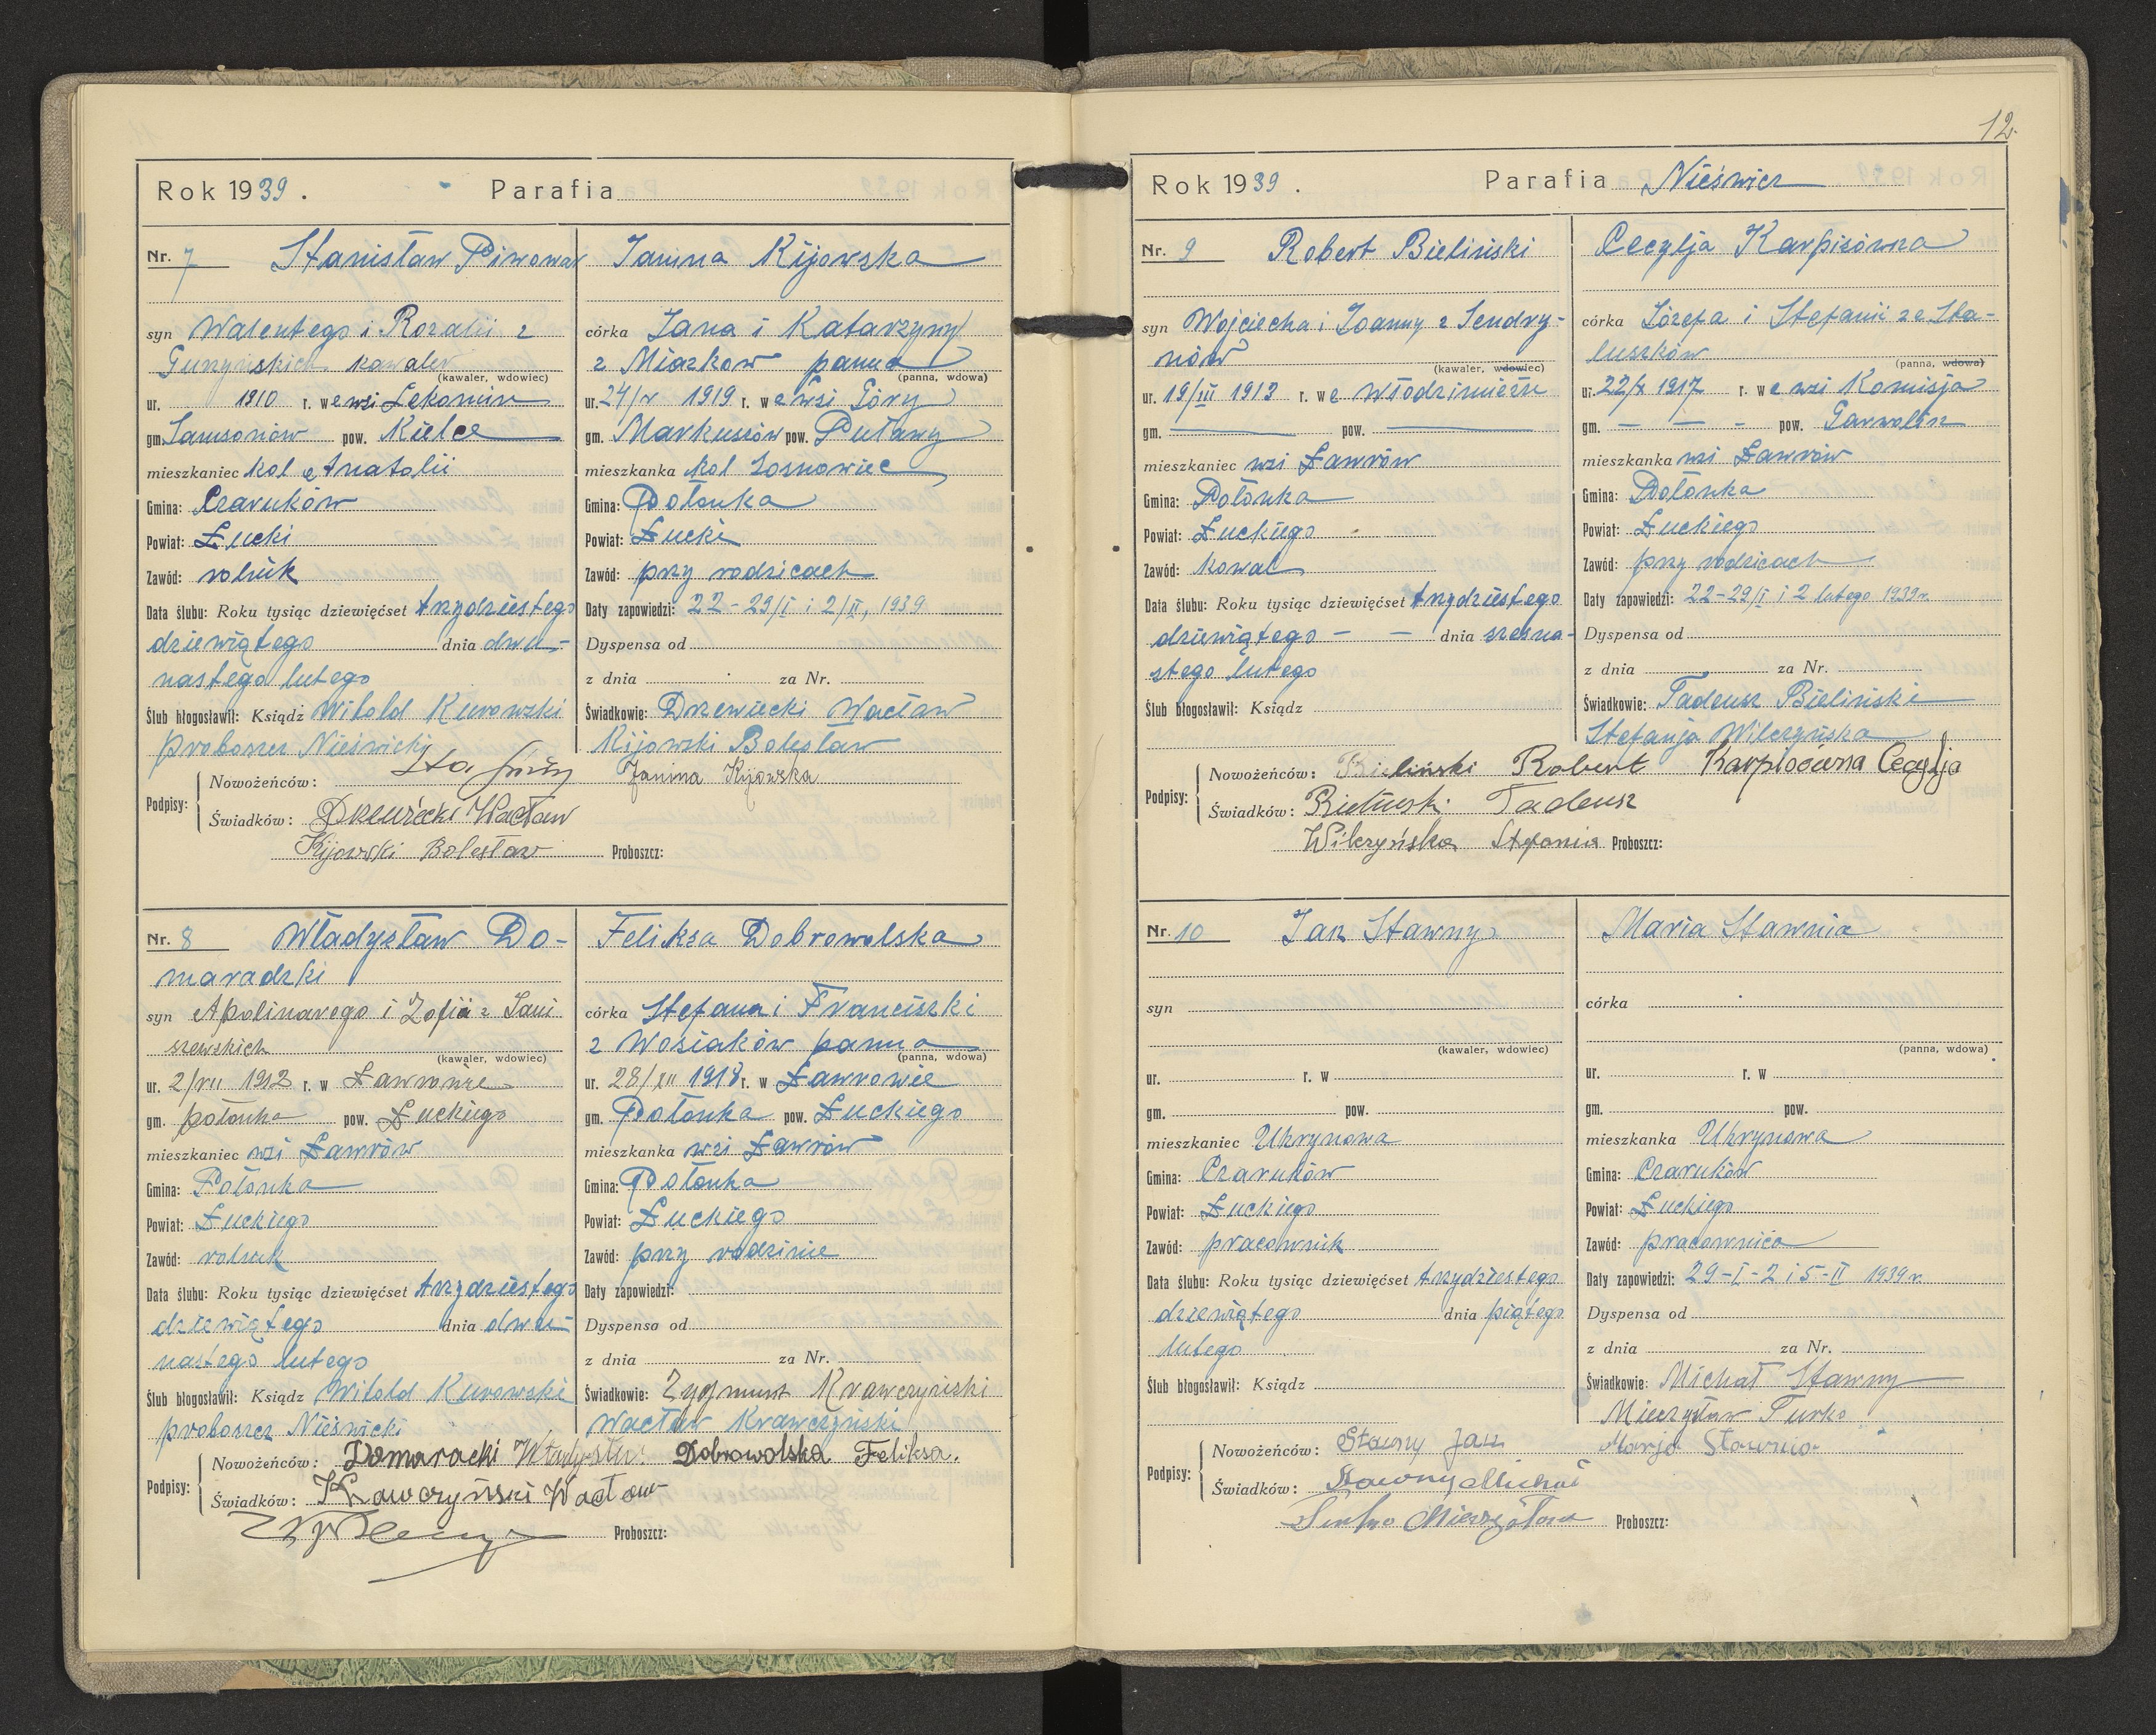 Rok 1939. Parafia
Nr. 7 Stanisław Piwowar
syn Walentego i Rozalii z
kawaler
(kawaler, wdowiec)
ur. 1910 r. we wsi Lekomin
gm. Samsonów pow. Kielce
mieszkaniec kol Anatolii
Gmina: Czaruków
Powiat: Łucki
Zawód: rolnik
Data ślubu: Roku tysiąc dziewięćset trzydziestego
dziewiątego dnia dwu-
nastego lutego
Ślub błogosławił: Ksiądz Witold Kurowski
proboszcz Nieświcki
Janina Kijowska
córka Jana i Katarzyny
z Miazków panna
(panna, wdowa)
ur. 24/V 1919 r. we wsi Góry
gm. Markuszów pow. Puławy
mieszkanka kol Sosnowiec
Gmina: Połonka
Powiat: Łucki
Zawód: przy rodzicach
Daty zapowiedzi: 22-29/I i 2/II, 1939
Dyspensa od
z dnia za Nr.
Świadkowie: Drzewiecki Wacław
Kijowski Bolesław
Podpisy: Nowożeńców: Janina Kijowska
Świadków: Drzewiecki Wacław
Kijowski Bolesław Proboszcz:
Nr. 8 Władysław Do-
maradzki
syn Apolinarego i Zofii z Jani
szewskich
(kawaler, wdowiec)
ur. 2/VII 1912 r. w Ławrowie
gm. Połonka pow. Łuckiego
mieszkaniec wsi Ławrów
Gmina: Połonka
Powiat: Łuckiego
Zawód: rolnik
Data ślubu: Roku tysiąc dziewięćset trzydziestego
dziewiątego dnia dwu-
nastego lutego
Ślub błogosławił: Ksiądz Witold Kurowski
proboszcz Nieświcki
Feliksa Dobrowolska
córka Stefana i Franciszki
z Wosiaków panna
(panna, wdowa)
ur. 28/XII 1918 r. w Ławrowie
gm. Połonka pow. Łuckiego
mieszkanka wsi Ławrów
Gmina: Połonka
Powiat: Łuckiego
Zawód: przy rodzinie
Daty zapowiedzi:
Dyspensa od
z dnia za Nr.
Świadkowie: Zygmunt Krawczyński
Wacław Krawczyński
Podpisy: Nowożeńców: Domaracki Dobrowolska Feliksa.
Świadków: Krawczyński Wacław
Proboszcz:
12.
Rok 1939. Parafia Nieświcz
Nr. 9 Robert Bieliński
syn Wojciecha i Joanny z Sendry-
nów
(kawaler, wdowiec)
ur. 19/III 1913 r. we Włodzimierzu
gm. pow.
mieszkaniec wsi Ławrów
Gmina: Połonka
Powiat: Łuckiego
Zawód: kowal
Data ślubu: Roku tysiąc dziewięćset trzydziestego
dziewiątego - - dnia szesna-
stego lutego
Ślub błogosławił: Ksiądz
Cecylja Karpisówna
córka Józefa i Stefanii ze Sta-
luszków
(panna, wdowa)
ur. 22/X 1917 r. we wsi Komisja
gm. - - - pow. Garwolin
mieszkanka wsi Ławrów
Gmina: Połonka
Powiat: Łuckiego
Zawód: przy rodzicach
Daty zapowiedzi: 22-29/I i 2 lutego 1939 r.
Dyspensa od
z dnia za Nr.
Świadkowie: Tadeusz Bieliński
Stefanja Wilczyńska
Podpisy: Nowożeńców: Bieliński Robert Cecylja
Świadków: Bieliński Tadeusz
Wilczyńska Stefania Proboszcz:
Nr. 10 Jan Stawny
syn
(kawaler, wdowiec)
ur. r. w
gm. pow.
mieszkaniec Uhrynowa
Gmina: Czaruków
Powiat: Łuckiego
Zawód: pracownik
Data ślubu: Roku tysiąc dziewięćset trzydziestego
dziewiątego dnia piątego
lutego
Ślub błogosławił: Ksiądz
Maria Stawnia
córka
(panna, wdowa)
ur. r. w
gm. pow.
mieszkanka Uhrynowa
Gmina: Czaruków
Powiat: Łuckiego
Zawód: pracownica
Daty zapowiedzi: 29-I-2 i 5-II 1939 r.
Dyspensa od
z dnia za Nr.
Świadkowie: Michał Stawny
Mieczysław Turko
Podpisy: Nowożeńców: Stawny Jan Marja Stawnia
Świadków: Stawny Michał
Mieczysław Proboszcz: